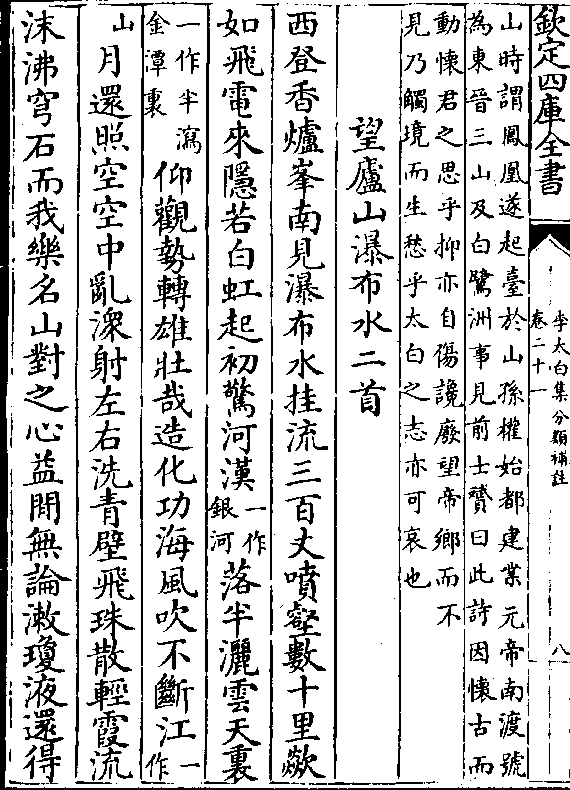 欽定四庫全書
李太白集分類補註
卷二十一
八
山時謂鳳凰遂起臺於山孫權始都建業元帝南渡號
為東晉三山及白鷺洲事見前士贇曰此詩因懷古而
動懷君之思乎抑亦自傷讒廢望帝鄉而不
見乃觸境而生愁乎太白之志亦可哀也
望廬山瀑布水二首
西登香爐峯南見瀑布水挂流三百丈噴壑數十里歘
如飛電來隱若白虹起初驚河漢一作銀河落半灑雲天裏
一作半瀉金潭裏仰觀勢轉雄壯哉造化功海風吹不斷江一作
山月還照空空中亂潨射左右洗青壁飛珠散輕霞流
沫沸穹石而我樂名山對之心益閒無論漱瓊液還得